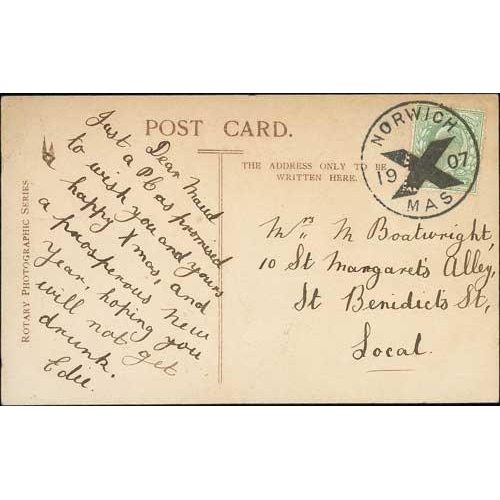 POST CARD.
THE ADDRESS ONLY TO BE
WRITTEN HERE.
ROTARY PHOTOGRAPHIC SERIES
Dear Maud
Just a P.C. as promised
to wish you and yours
a happy Xmas, and
a prosperous New
Year, hoping you
will not get
drunk.
Edie.
NORWICH
19 07
X
MAS
Mrs M Boatwright
10 St Margaret's Alley,
St Benidict's St,
Local.